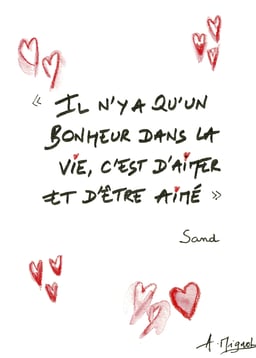 « IL N'Y A QU'UN
BONHEUR DANS LA
VIE, C'EST D'AIMER
ET D'ÊTRE AIMÉ »
Sand
A. Mignot